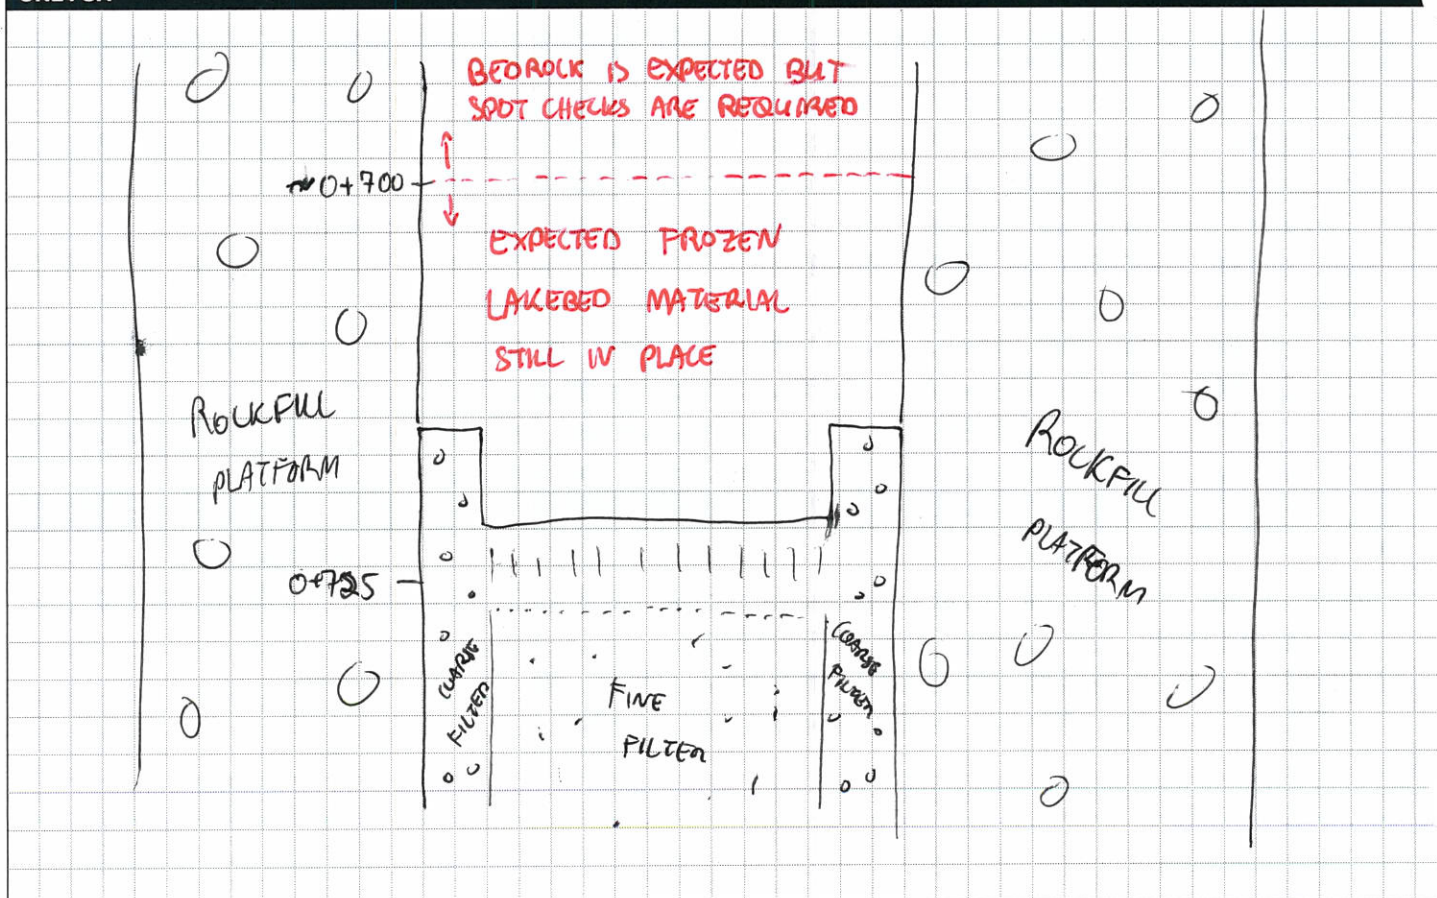 BEDROCK IS EXPECTED BUT
SPOT CHECKS ARE REQUIRED
~0+700
EXPECTED FROZEN
LAKEBED MATERIAL
STILL IN PLACE
ROCKFILL
PLATFORM
ROCKFILL
PLATFORM
0+725
COARSE
FILTER
FINE
FILTER
COARSE
FILTER